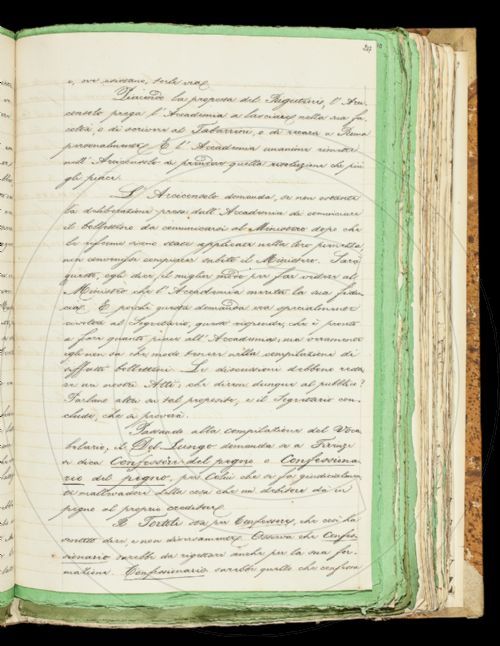 e, ove esistano, torle via.
Lodando la proposta del Rigutini, l'Arci-
consolo prega l'Accademia a lasciare nella sua fa-
coltà, o di scrivere al Tabarrini, o di recarsi a Roma
personalmente. E l'Accademia unanime rimette
nell'Arciconsolo di prendere quella risoluzione che più
gli piace.
L'Arciconsolo domanda, se non ostante
la deliberazione presa dall'Accademia di cominciare
il bollettino da comunicarsi al Ministero dopo che
le riforme siano state applicate nella loro pienezza,
non convenga compiacer subito il Ministro. Sarà
questo, egli dice, il miglior modo per far vedere al
Ministro che l'Accademia merita la sua fidu-
cia. E perchè questa domanda era specialmente
rivolta al Segretario, questi risponde, che è pronto
a fare quanto piace all'Accademia, ma veramente
egli non sa che modo tenere nella compilazione di
siffatti bollettini. Le discussioni debbono resta-
re ne' nostri Atti; che diremo dunque al pubblico?
Parlano altri su tal proposito, e il Segretario con-
clude, che si proverà.
Passando alla compilazione del Voca-
bolario, il Del Lungo domanda se a Firenze
si dica Confessore del pegno o Confessiona-
rio del pegno, per Colui che si fa giudicialmen-
te mallevadore della cosa che un debitore dà in
pegno al proprio creditore.
Il Tortoli sta per Confessore, che così ha
sentito dire, e non diversamente. Osserva che Confes-
sionario sarebbe da rigettare anche per la sua for-
mazione. Confessionario sarebbe quello che confessa